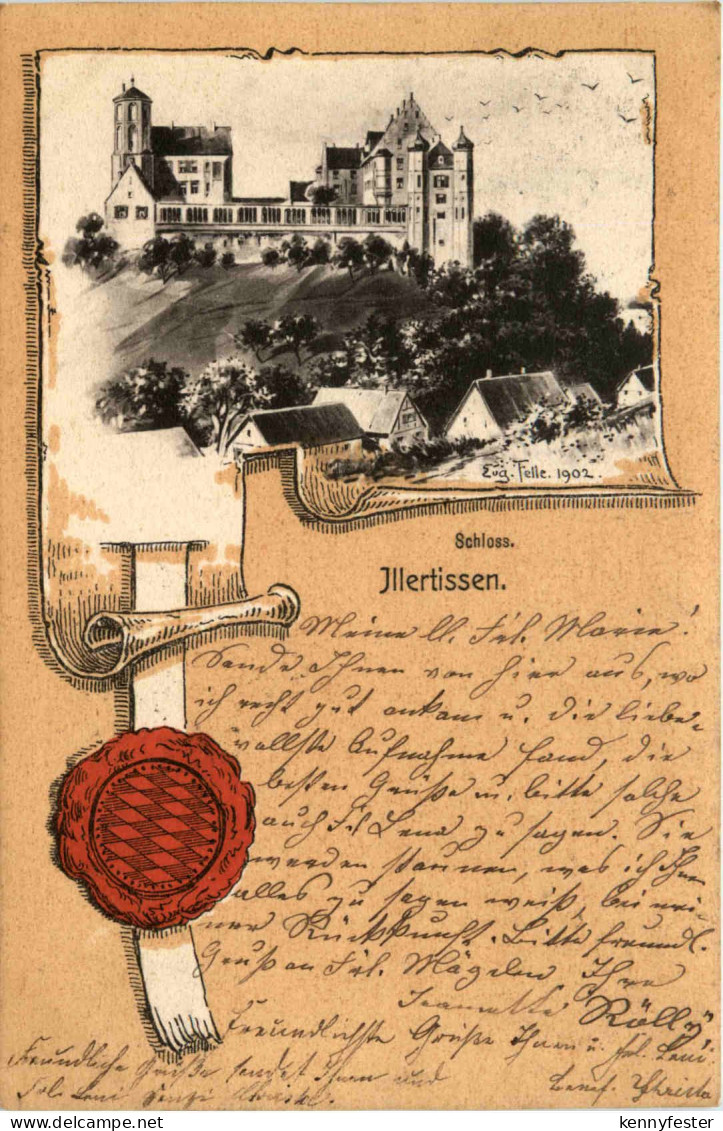 Eug. Felle. 1902.
Schloss.
Illertissen.
Meine ll. Frl. Marie!
Sende Ihnen von hier aus, wo
ich recht gut ankam u. die liebe-
vollste Aufnahme fand, die
besten Grüße u. bitte solche
auch Frl Lena zu sagen. Sie
werden staunen, was ich Ihnen
alles zu sagen weiß, bei mei-
ner Rückkunft. Bitte freundl.
Gruß an Frl. Ihre
Jeanette
Freundlichste Grüße Ihnen u. Frl. Leni.
Freundliche Grüße sendet Ihnen und
Frl. Leni
kennyfester